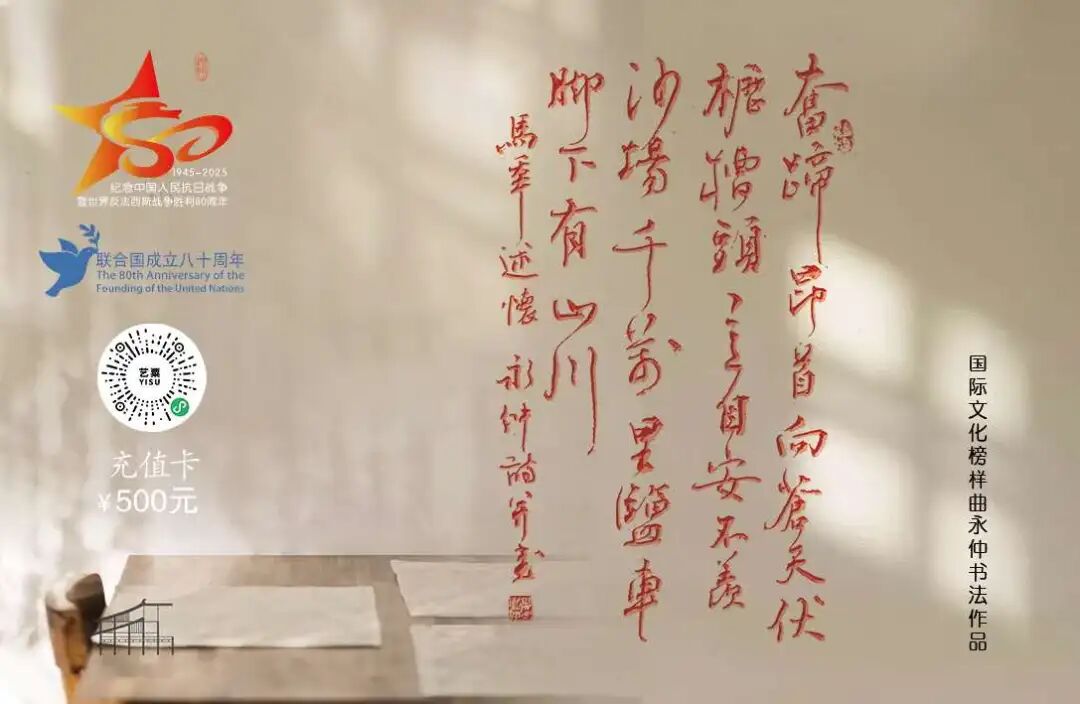 1945-2025
纪念中国人民抗日战争
暨世界反法西斯战争胜利80周年
联合国成立八十周年
The 80th Anniversary of the
Founding of the United Nations
艺粟
YISU
充值卡
¥500元
奮蹄昂首向蒼天伏
櫪槽頭意自安不羨
沙場千萬里鹽車
脚下有山川
馬年述懷 永仲詩并書
国际文化榜样曲永仲书法作品